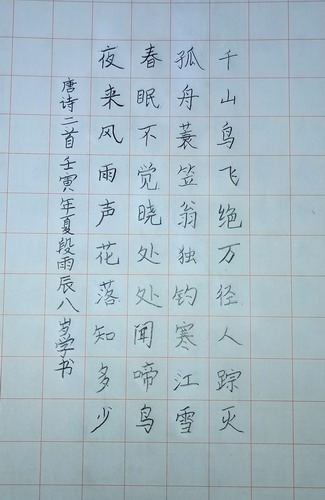 千山鸟飞绝万径人踪灭
孤舟蓑笠翁独钓寒江雪
春眠不觉晓处处闻啼鸟
夜来风雨声花落知多少
唐诗二首壬寅年夏段雨辰八岁学书